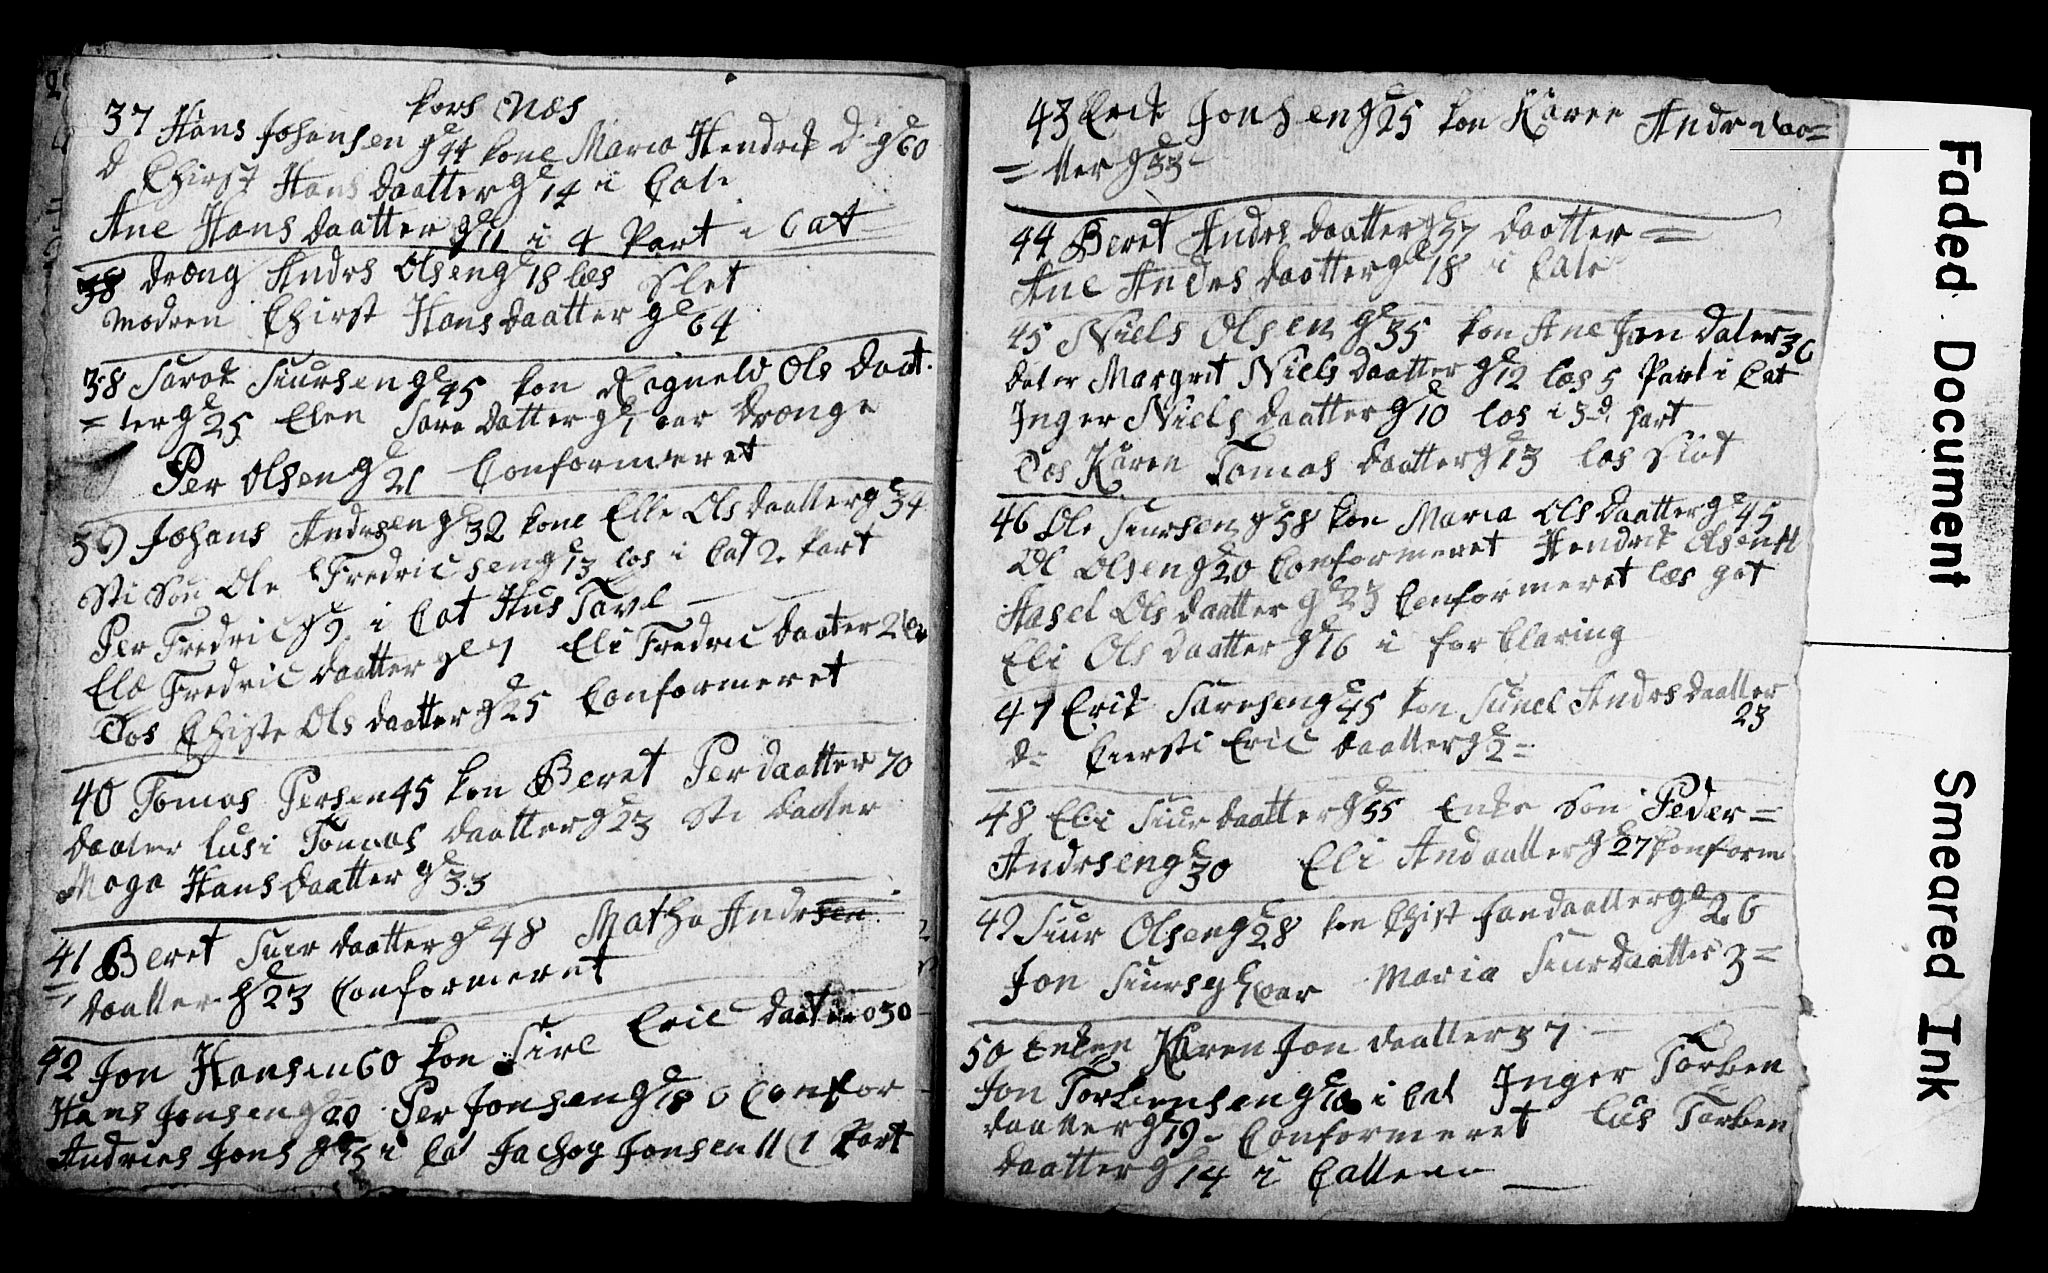 Kors Næs
37 Hans Johansen gl 44 kone Maria Hendrik D. gl 60
d Chirst Hans daatter gl 14 i Cat.
Ane Hans daatter gl 11 i 4 Part i Cat
38 dræng Andrs Olsen gl 18 læs Slet
Modren Chirst Hans daatter gl 64
38 Sarak Siursen gl 45 kon Ragneld Ols daat
= ter gl 25 Elen Sara datter gl 1 aar Drænge
Per Olsen gl 21 Conformeret
39 Johans Andrsen gl 32 kone Elle Ols daatter gl 34
Sti Søn Ole Fredricsen gl 13 læs i Cat 2. Part
Per Fredric gl 9 i Cat Hus Tavl
Ele Fredric daatter gl 7 Eli Fredric daater 2
Tøs Chiste Ols daatter gl 25 Conformeret
40 Tomas Persen 45 kon Beret Per daatter 70
daater Lusi Tomas daatter gl 23 Sti daater
Maga Hans daatter gl 33
41 Beret Siur daatter gl 48 Matha Andrsen
= daatter gl 23 Conformeret
42 Jon Hansen 60 kon Sirl Eric daatter 50
Hans Jonsen gl 20 Per Jonsen gl 18 Confor
Andries Jons gl 15 i Cat Jachop Jonsen 11 Part
43 Erik Jonsen gl 25 kon Karen Andr daa=
= tter gl 33
44 Beret Andrs daatter gl 57 daatter =
Ane Andrs daatter gl 18 i Cate
45 Niels Olsen gl 35 kon Ane Jon dater 36
dater Margrit Niels daatter gl 12 læs 5 Part i Cat
Inger Niels daatter gl 10 læs i 3d part
Tøs Karen Tomas daatter gl 13 læs Slat
46 Ole Siursen gl 58 kon Maria Ols daatter gl 45
Ol Olsen gl 20 Conformeret Hendrik Olsen 11
Hasel Ols daatter gl 23 Conformeret læs got
Eli Ols daatter gl 16 i forklaring
47 Erik Sarrsen gl 45 kon Sunel Andrs daatter
23
d= Ciersti Eric daatter gl 2=
48 Elli Siur daatter gl 55 Enke Søn Peder =
Andrsen gl 30 Eli And aatter gl 27 konform
49 Siur Olsen gl 28 kon Chist Jon daatter gl 26
Jon Siurs gl 1 aar Maria Siur daatter 3=
50 Enken Karen Jon daatter 57
Jon Torbensen gl 16 i Cat Inger Torben
daatter gl 19 - Conformeret Lus Torben
daatter gl 14 i Catleen
Faded Document
Smeared Ink